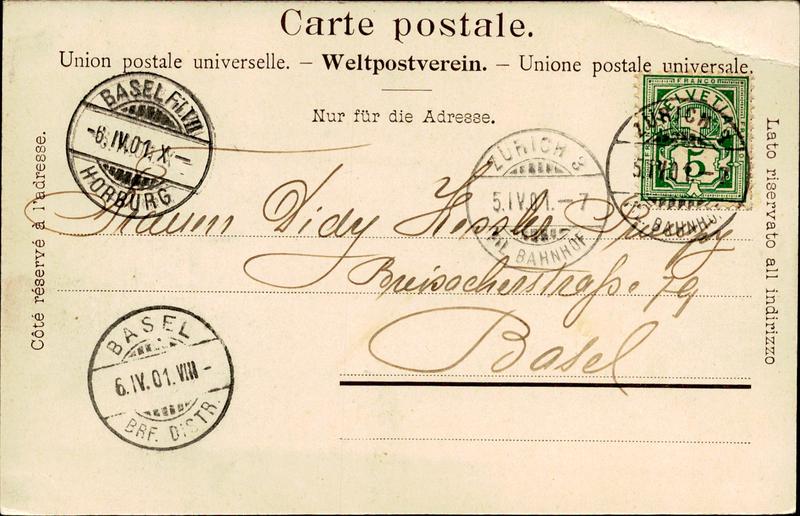 Carte postale.
Union postale universelle. – Weltpostverein. – Unione postale universale.
Nur für die Adresse.
Côté réservé à l'adresse.
Lato riservato all indirizzo
BASEL Fil. VII
-6.IV.01.X.-
HORBURG
ZÜRICH 3
5.IV.01.-7
FIL. BAHNHOF
FRANCO
HELVETIA
5
ZÜRICH 3
5.IV.01.-7
FIL. BAHNHOF
Didy Kessler
Breisacherstraße 79
Basel
BASEL
6.IV.01.VIII-
BRF. DISTR.